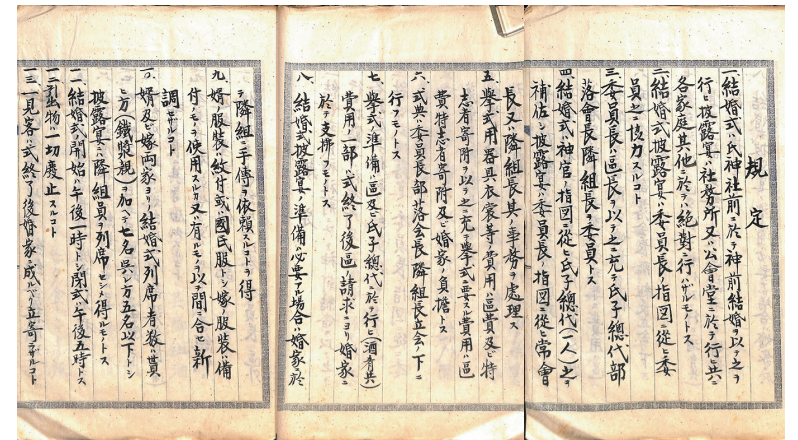 規定
一、結婚式ハ氏神社前ニ於テ神前結婚ヲ以テ之ヲ
行ヒ披露宴ハ社務所又ハ公會堂ニ於テ行ヒ共ニ
各家庭其他ニ於テハ絶對ニ行ハザルモノトス
二、結婚式披露宴ハ委員長ノ指図ニ從ヒ委
員之ニ協力スルコト
三、委員長ハ區長ヲ以テ之ニ充テ氏子總代部
落會長隣組長ヲ委員トス
四、結婚式ハ神官ノ指図ニ從ヒ氏子總代(一人)之ヲ
補佐シ披露宴ハ委員長ノ指図ニ從ヒ常會
長又ハ隣組長其ノ事務ヲ處理ス
五、擧式用器具衣裳等ノ費用ハ區費及ビ特
志者寄附ヲ以テ之ニ充テ擧式ニ要スル費用ハ區
費特志者寄附及ビ婚家ノ負擔トス
六、式典ハ委員長部落会長隣組長立会ノ下ニ
行フモノトス
七、擧式準備ハ區及ビ氏子總代ニ於テ行ヒ(酒肴共)
費用ノ一部ハ式終了後區ノ請求ニヨリ婚家ニ
於テ支拂フモノトス
八、結婚式披露宴ノ準備ニ必要アル場合ハ婚家ニ於
テ隣組ニ手傳ヲ依賴スルコトヲ得
九、婿ノ服装ハ紋付或ハ國民服トシ嫁ノ服装ハ備
付ノモノヲ使用スルカ又ハ有ルモノヲ以テ間ニ合セ新
調セザルコト
一〇、婿及ビ嫁両家ヨリノ結婚式列席者数ハ貰
ヒ方(鐵漿親)ヲ加ヘテ七名呉レ方五名以下トシ
披露宴ニハ隣組員ヲ列席セシメ得ルモノトス
一一、結婚式ノ開始ハ午後一時トシ閉式ハ午後五時トス
一二、引出物ハ一切廢止スルコト
一三、一見客ハ式終了後婚家ニ成ルベク立寄ラザルコト